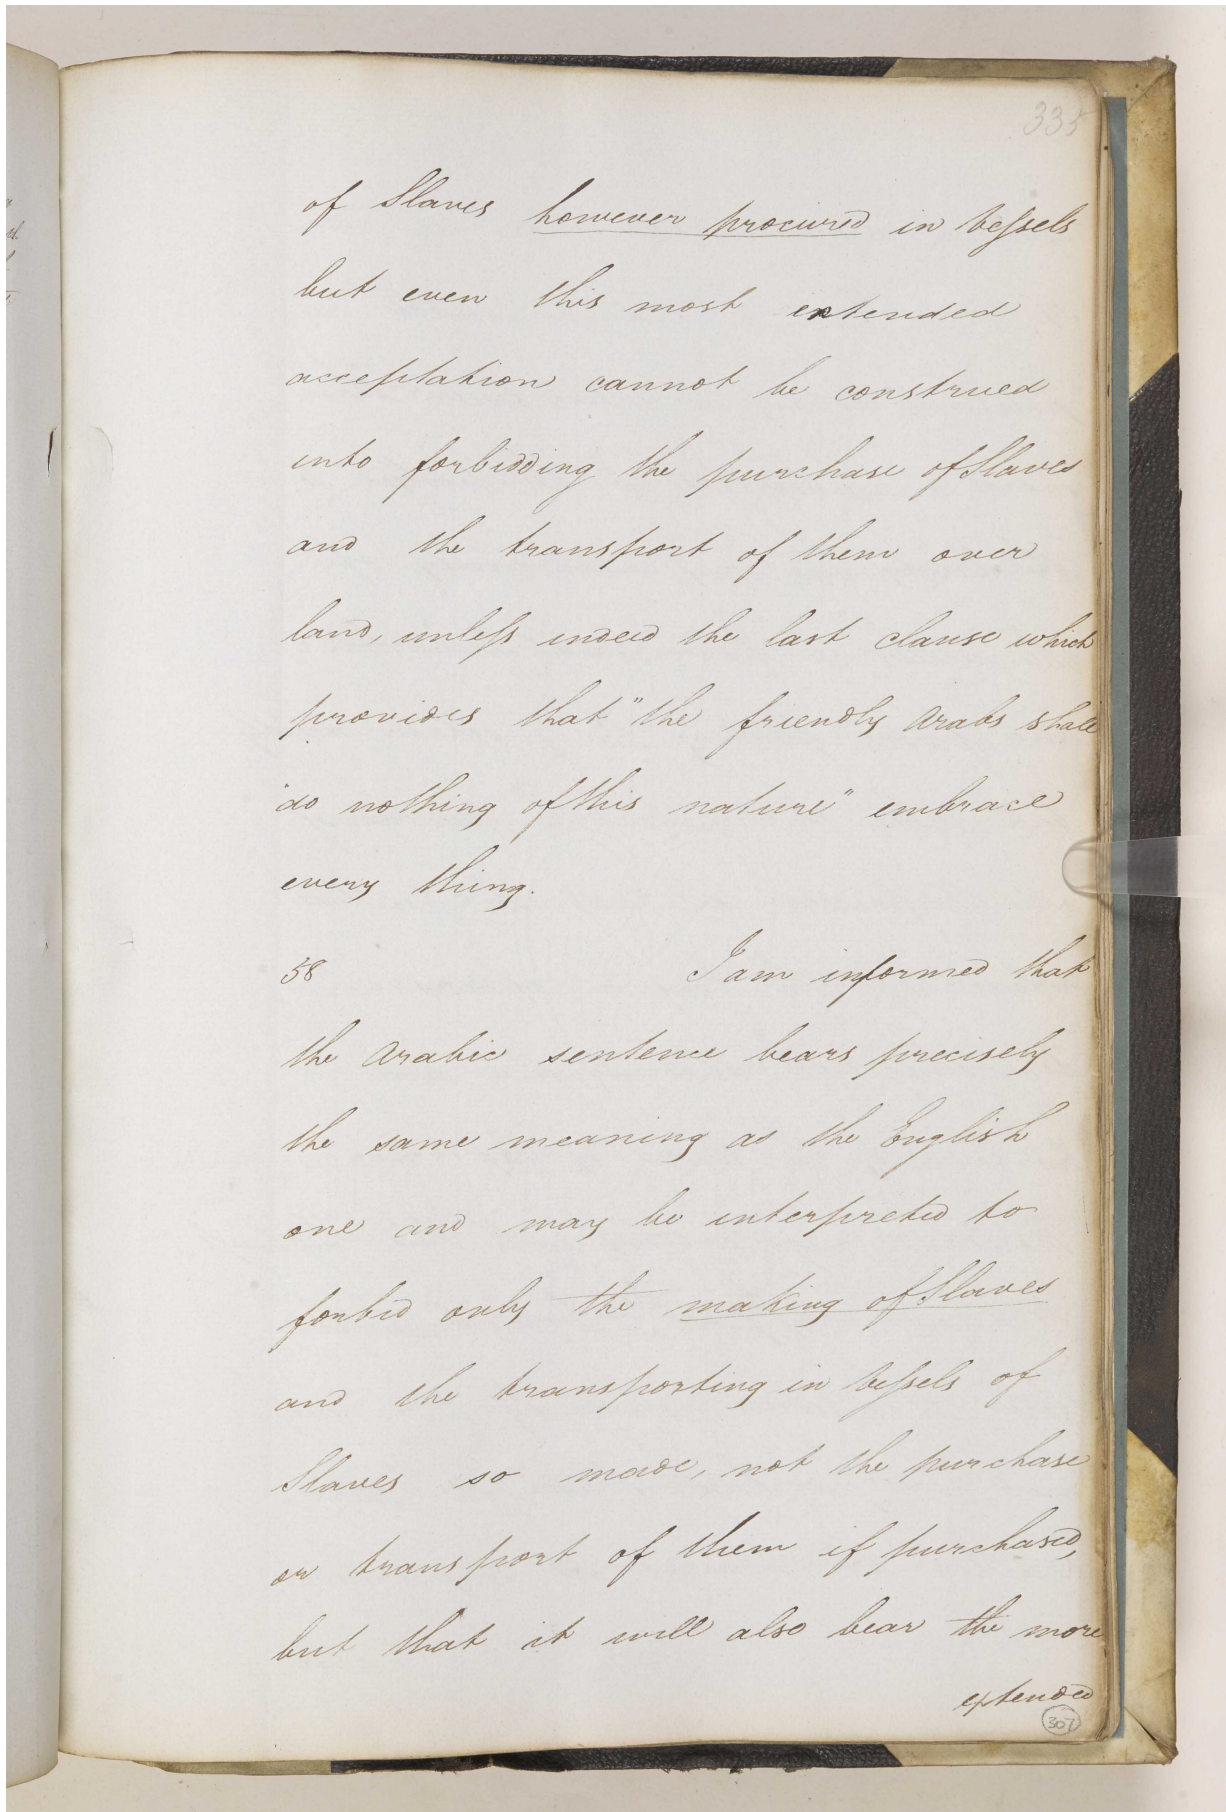 335
of Slaves however procured in vessels
but even this most extended
acceptation cannot be construed
into forbidding the purchase of Slaves
and the transport of them over
land, unless indeed the last clause which
provides that "the friendly Arabs shall
"do nothing of this nature" embrace
every thing.
58 I am informed that
the Arabic sentence bears precisely
the same meaning as the English
one and may be interpreted to
forbid only the making of Slaves
and the transporting in vessels of
Slaves so made, not the purchase
or transport of them if purchased,
but that it will also bear the more
extended
307